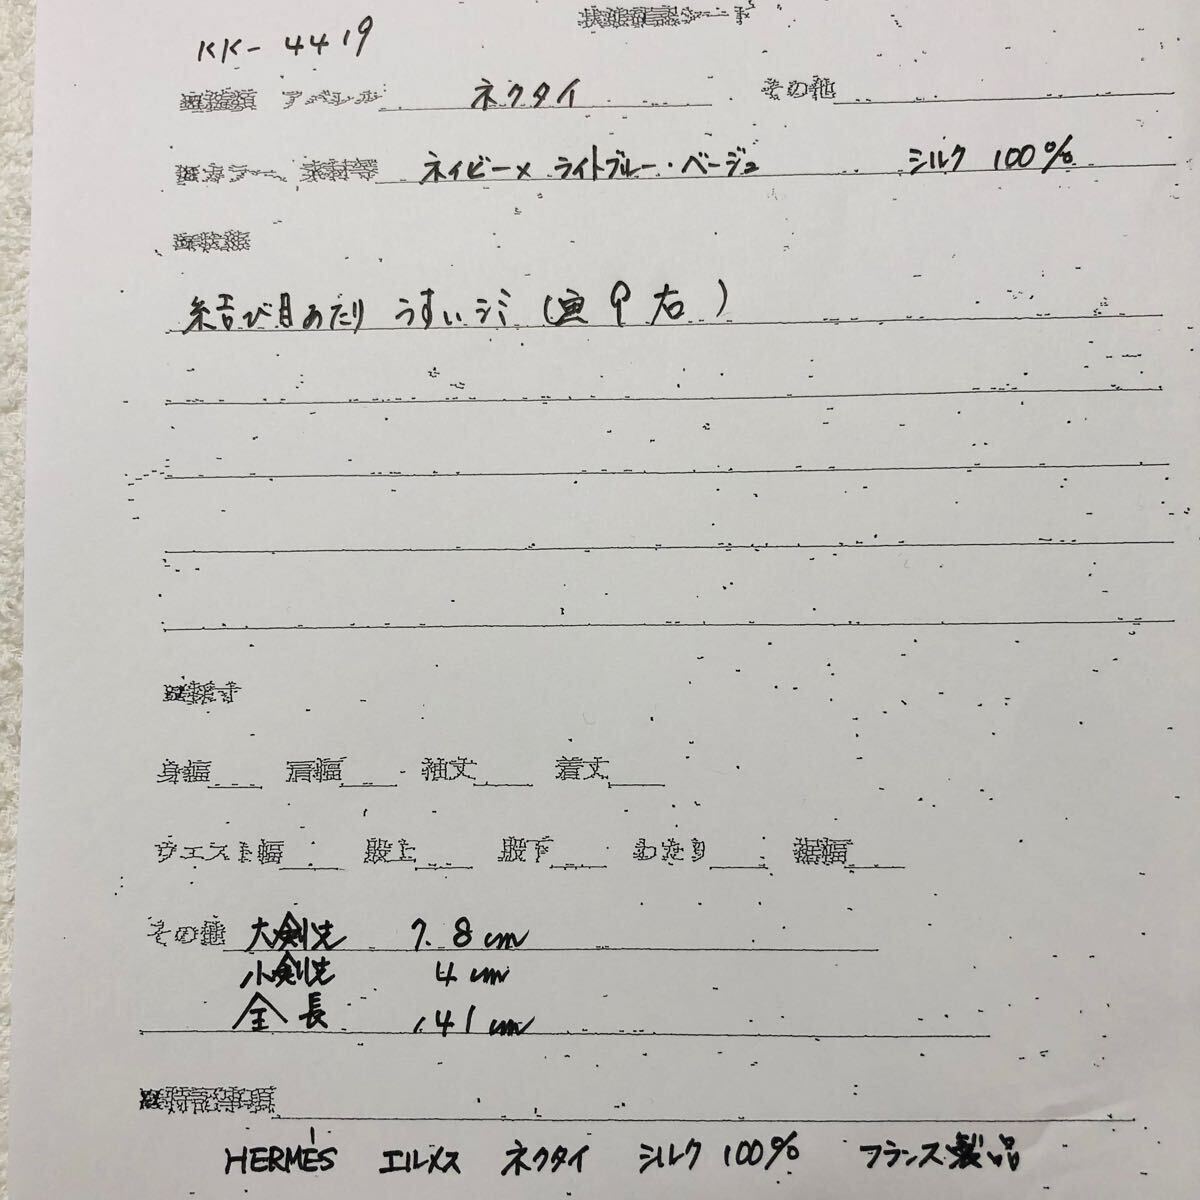 KK-4419
アパレル ネクタイ その他
カラー、素材等 ネイビー× ライトブルー・ベージュ シルク 100%
結び目あたり うすいシミ (画 9 右)
採寸
身幅 肩幅 袖丈 着丈
ウエスト幅 股上 股下 わたり 裾幅
その他 大剣先 7.8cm
小剣先 4cm
全長 141cm
特記事項
HERMÈS エルメス ネクタイ シルク 100% フランス製品